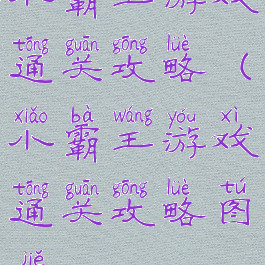 霸王游戏
tōng guān gōng lüè
通关攻略（
xiǎo bà wáng yóu xì
小霸王游戏
tōng guān gōng lüè tú
通关攻略图
jiě